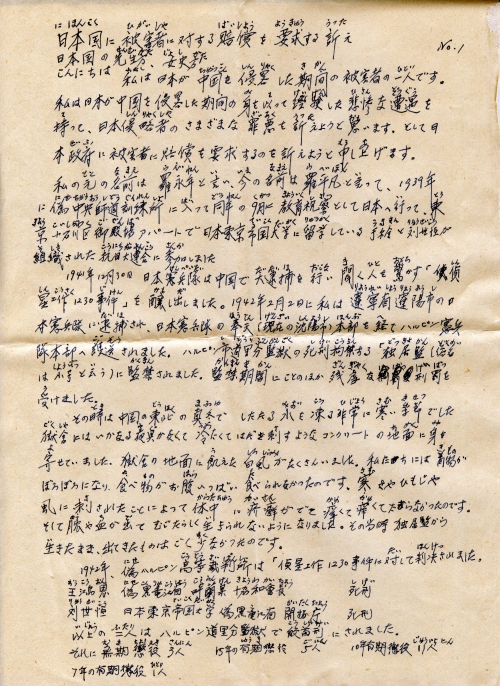 日本国に被害者に対する賠償を要求する訴え
No.1
日本国の先生方、女史方
こんにちは 私は日本が中国を侵畧した期间の被害者の一人です。
私は日本が中国を侵畧した期间の身を以って経験した悲惨な遭遇を
持って、日本侵略者のさまざまな罪悪を訴えようと思います。そして日
本政府に被害者に賠償を要求するのを訴えようと申し上げます。
私の元の名前は羅永年と言い、今の名前は羅平凡と言って、1939年
に偽中央師道訓練所に入って同年の9月に教育視察として日本へ行って、東
京小石川区御殿場アパートで日本東京帝国大学に留学している 劉世恒が
組織された抗日大連合に参加しました
1941年12月30日 日本憲兵隊は中国で大逮捕を行い 聞く人を驚す「偵偵
星工作1230事件」を醸し出しました。1942年2月2日に私は遼寧省遼陽市の日
本憲兵隊に逮捕され、日本憲兵隊の奉天(現在の沈陽市)本部を経てハルピン憲兵
隊本部へ護送されました。ハルピン市道里分監獄の死刑を拘禁する「独居監(俗名
は小号と云う)に監禁されました。監禁期間にことのほか残虐な刑罰を
受けました。
その時は中国の東北の真冬で したたる水も凍る非常に寒い季節でした
獄舎にはいかなる寝具がなくて 冷たくてはだを刺すようなコンクリートの地面に身を
寄せていました。獄舎の地面に飢えた白虱がたくさんいました。私たちには着物が
ぼろぼろになり、食べ物がお腹いっぱい食べられなかったのです。寒さやひもじや
虱に刺されたことによって体中に疥癬ができ痛くて痒くてたまらなかったのです。
そして膿や血が出てむごたらしく見られないようになりました。その当時独居監から
生きたまま、出てきたものはごく少なかったのです。
1942年 偽ハルピン高等裁判所は「偵星工作1230事件に対して判決されました。
王 偽黒竜江省 協和会長 死刑
劉世恒 日本東京帝国大学 偽黒竜江省 開拓庁 死刑
以上の二人はハルピン道里分監獄で絞首刑にされました。
それに無期懲役3人 15年の有期懲役5人 10年有期懲役11人
7年の有期懲役1人